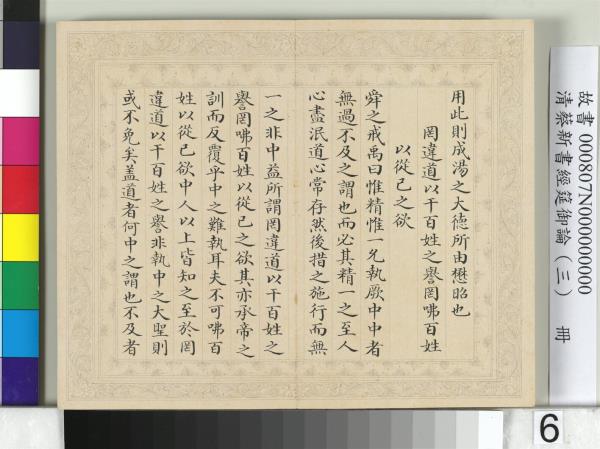 用此則成湯之大德所由懋昭也
罔違道以干百姓之譽罔咈百姓
以從己之欲
舜之戒禹曰惟精惟一允執厥中中者
無過不及之謂也而必其精一之至人
心盡泯道心常存然後措之施行而無
一之非中益所謂罔違道以干百姓之
譽罔咈百姓以從己之欲其亦承帝之
訓而反覆乎中之難執耳夫不可咈百
姓以從己欲中人以上皆知之至於罔
違道以干百姓之譽非執中之大聖則
或不免矣蓋道者何中之謂也不及者
故書000807N000000000
清蔡新書經筵御論（三） 冊
6